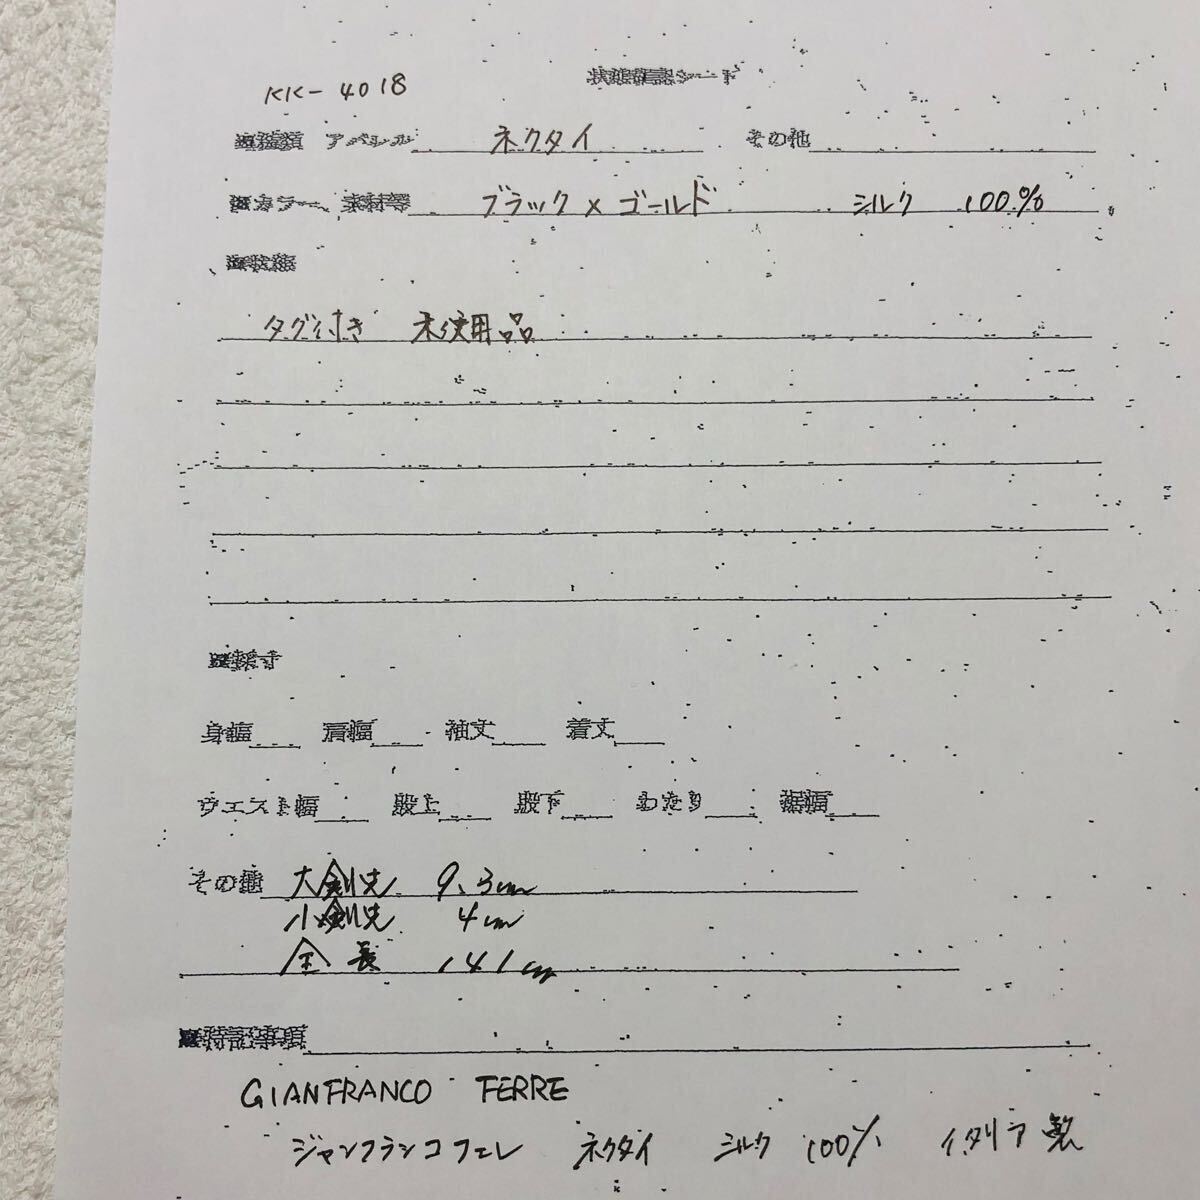 KK-4018
状態確認シート
■種類 アパレル ネクタイ その他
■カラー、素材等 ブラック×ゴールド シルク 100%
■状態
タグ付き 未使用品
■採寸
身幅 肩幅 袖丈 着丈
ウエスト幅 股上 股下 わたり 裾幅
その他 大剣先 9.3cm
小剣先 4cm
全長 141cm
■特記事項
GIANFRANCO FERRE
ジャンフランコフェレ ネクタイ シルク 100% イタリア製